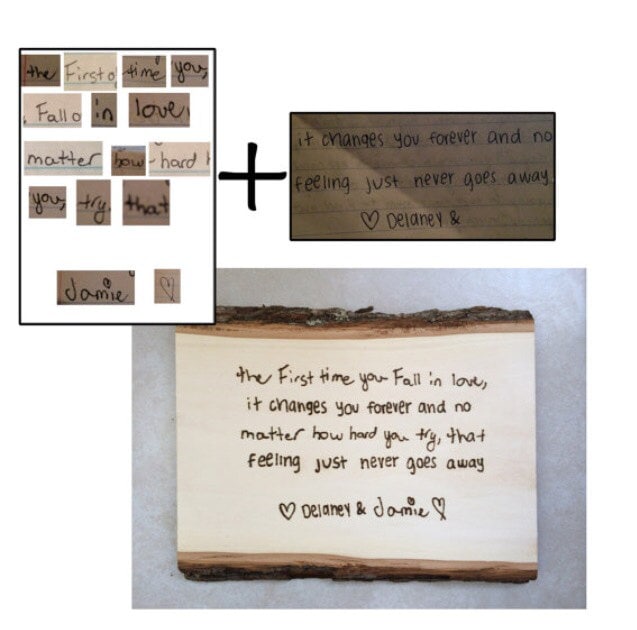 the First time you
Fall in love
matter how hard
you try that
Jamie ♡
+
it changes you forever and no
feeling just never goes away
♡ Delaney &
the First time you Fall in love,
it changes you forever and no
matter how hard you try, that
feeling just never goes away
♡ Delaney & Jamie ♡